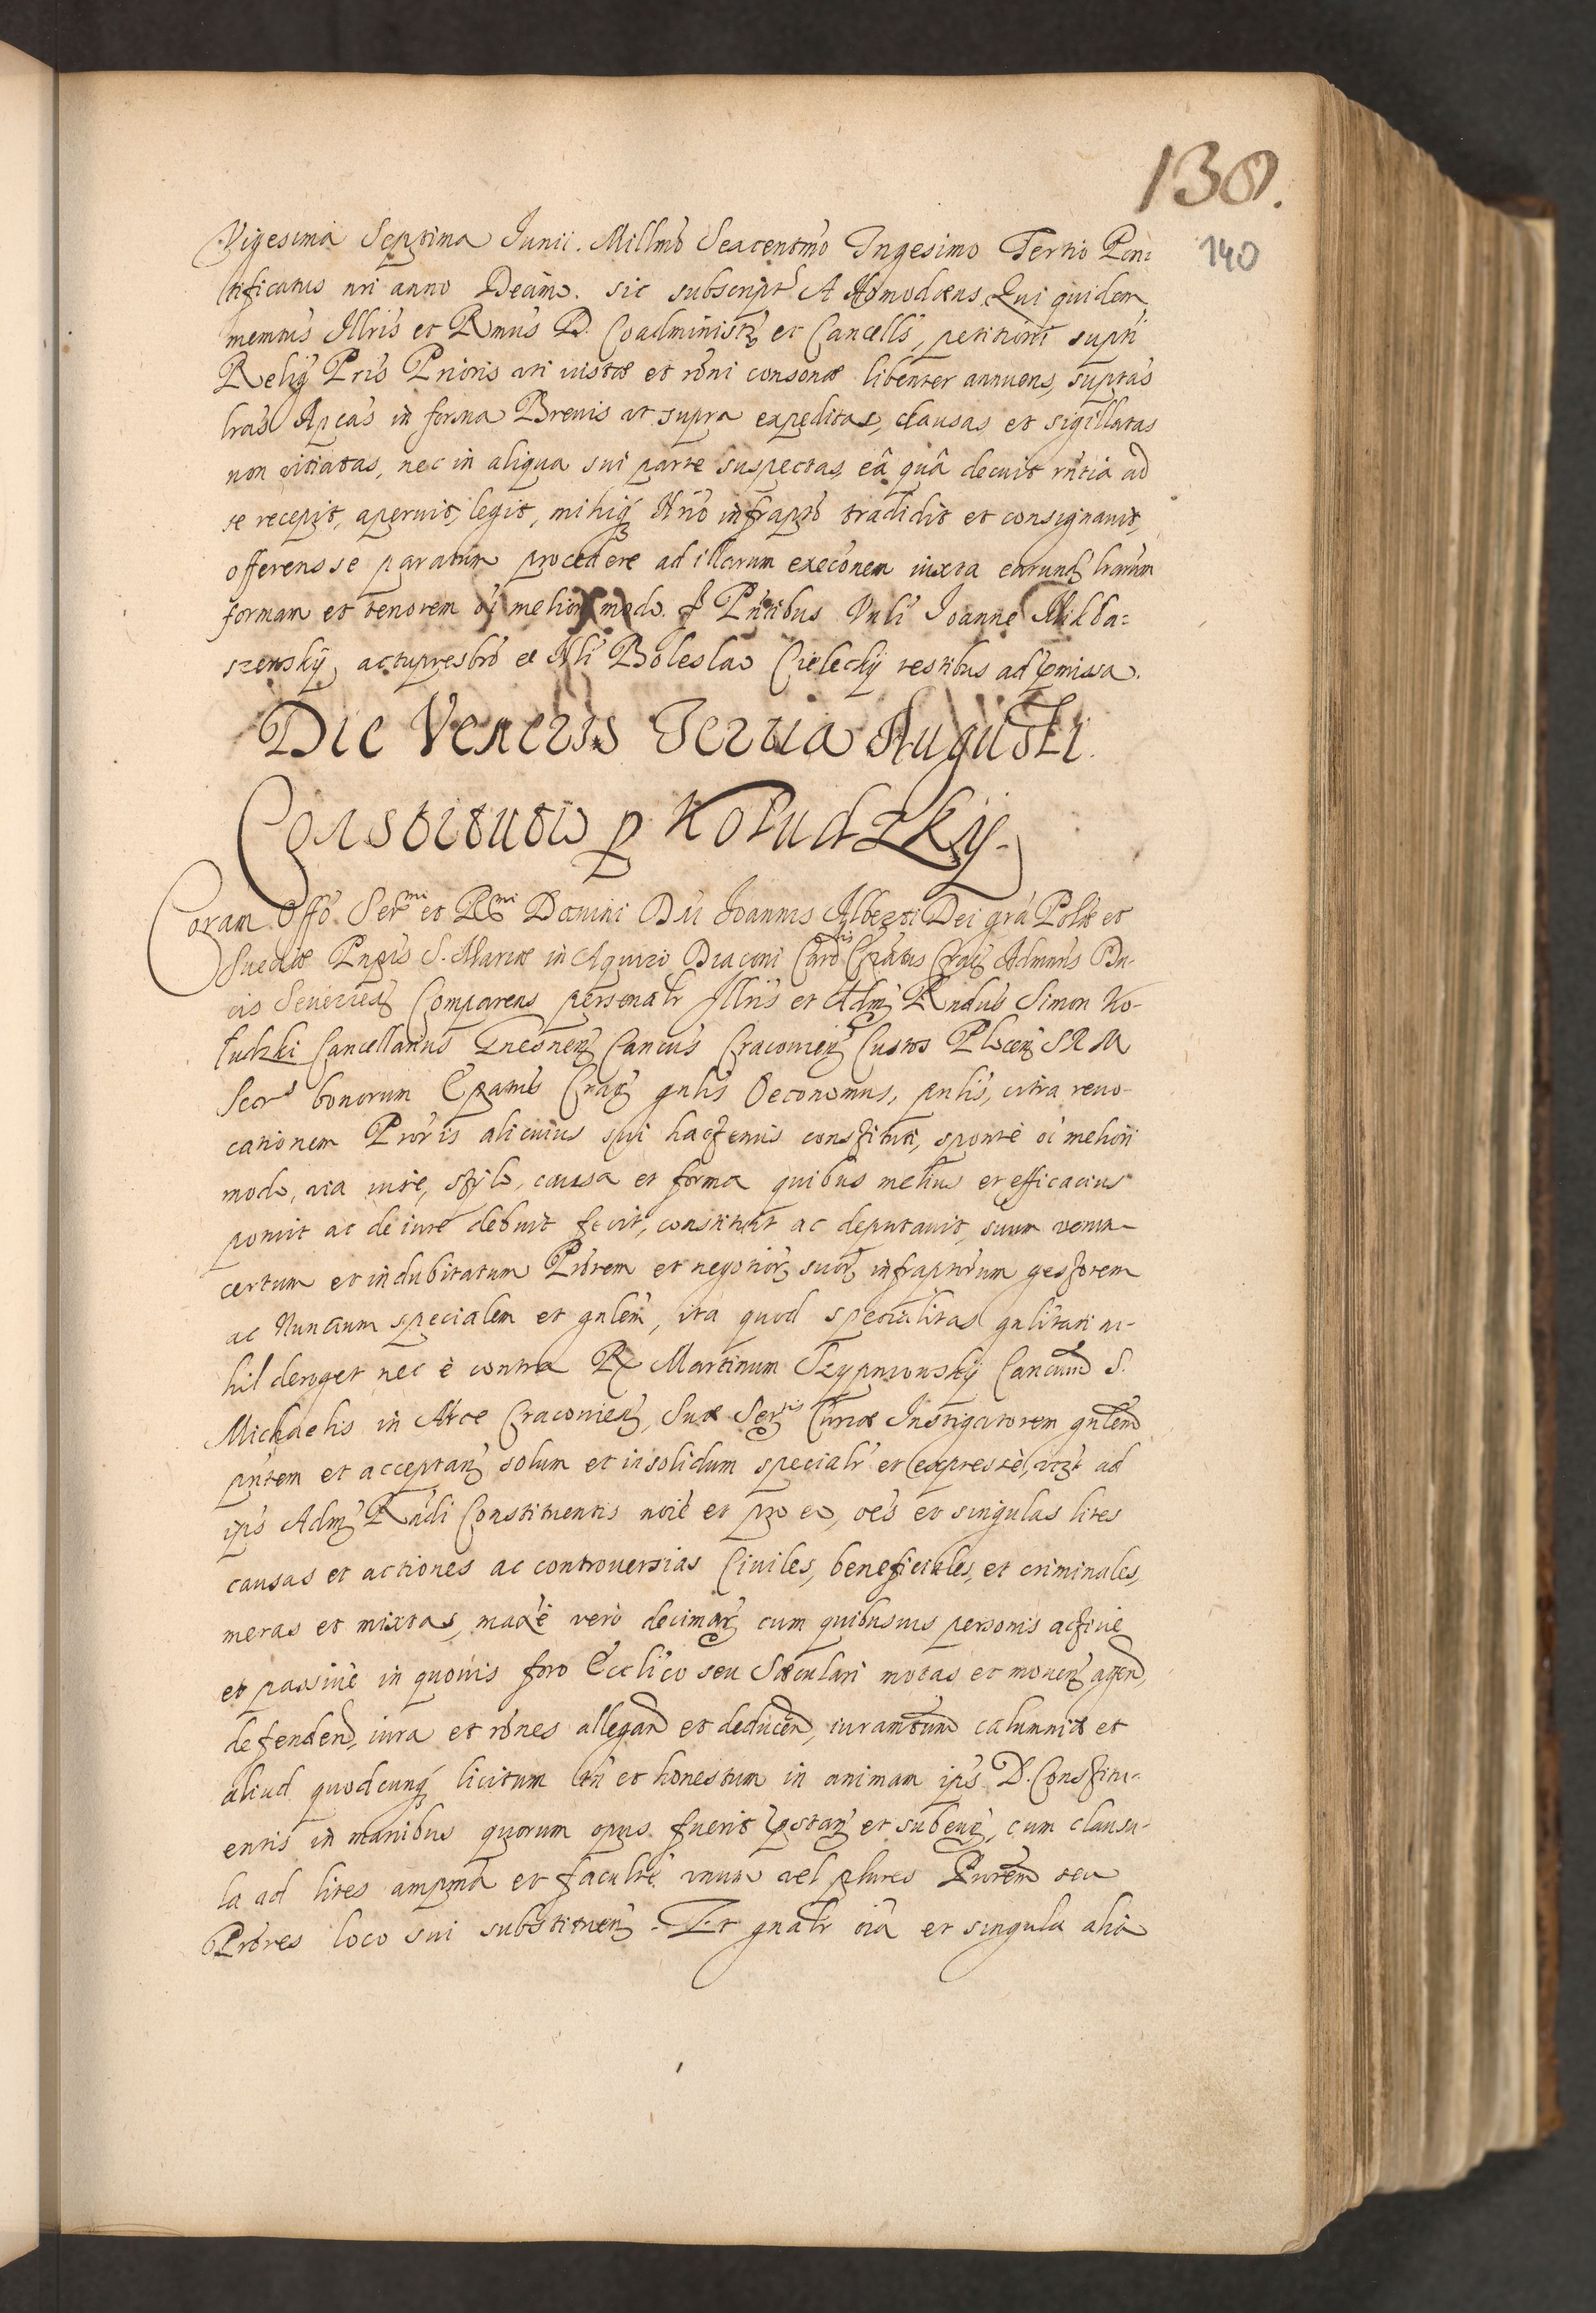 138.
140
Vigesima Septima Junii. Millmo Sexcentmo Trigesimo Tertio Pon:
tificatus nri anno Decimo. sic subscript A Homodaeus. Qui quidem
memtus Illris et Rmus D. Coadministr et Cancells, petitioni supti
Relig Pris Prioris uti iustae et roni consonae libenter annuens, suptas
lras Apcas in forma Brevis ut supra expeditas, clausas et sigillatas
non vitiatas, nec in aliqua sui parte suspectas, eâ quâ decuit rntia ad
se recepit, aperuit, legit, mihiq Nrio infrapto tradidit et consignauit,
offerens se paratum procedere ad illarum execonem iuxta earund lrarum
formam et tenorem oi meliori modo. Pntibus Vnli Joanne
szewskij actupresbro et Nli Boleslao Cieleckij testibus ad pmissa.
Die Veneris Tertia Augusti.
Constitutio p Kołudzkij.
Coram Offo Sermi et Rmi Domini Dni Joannis Alberti Dei gra Polae et
Sueciae Pnpis S. Mariae in Aquiro Diaconi Cardlis Epatus Crac Admnris Du-
cis Seuerien Comparens personalr Illris et Adm Rndus Simon Ko-
łudzki Cancellarius Gnesnen Cancus Cracouien Custos Plocen SRM
Secrs bonorum Epatus Crac gnlis Oeconomus, pnlis, citra reuo-
cationem Proris alicuius sui hactenus constituti, sponte oi meliori
modo, via iure, stylo, causa et forma quibus melius et efficacius
potuit ac de iure debuit fecit, constituit ac deputauit, suum verum
certum et indubitatum Prorem et negotior suor infraptorum gestorem
ac Nuncium specialem et gnlem, ita quod specialitas gnlitati ni-
hil deroget nec è contra R Martinum Cancum S.
Michaelis in Arce Cracouien, Suae Sertis Curiae Instigatorem gnlem
pntem et acceptan solum et insolidum specialr et expressè, vzt ad
ips Adm Rndi Constituentis noie et pro eo, oes et singulas lites
causas et actiones ac controuersias Ciuiles, beneficiales, et criminales,
meras et mixtas, maxè verò decimar cum quibusuis personis actiuè
et passiuè in quouis foro Ecclico seu Saeculari motas et mouen agen,
defenden, iura et rones allegan et deducen, iuramtum calumniae et
aliud quodcunq licitum tn et honestum in animam ips D. Constitu-
entis in manibus quorum opus fuerit pstan et subeun, cum clausu-
la ad lites amplma et facultè unum vel plures Prorem seu
Prores loco sui substituen. Et gnalr oia et singula alia